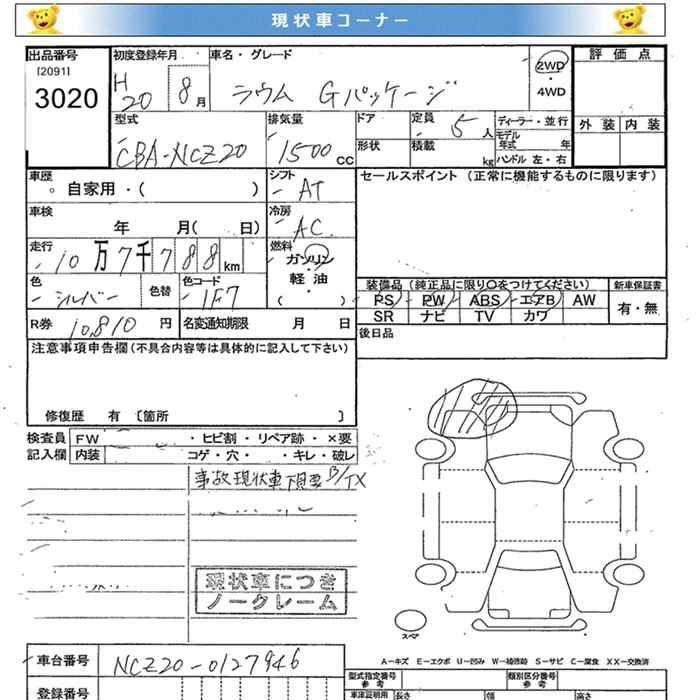 現状車コーナー
出品番号 初度登録年月 車名・グレード 評価点
[2091] H 20 8月 ラウム Gパッケージ 2WD・4WD
3020
型式 排気量 ドア 定員 5人 ディーラー・並行 外装 内装
CBA-NCZ20 1500cc 形状 積載 kg モデル年式 年
ハンドル 左・右
車歴 自家用・( ) シフト AT セールスポイント（正常に機能するものに限ります）
車検 年 月( 日) 冷房 AC
走行 10万7千788km 燃料 ガソリン・軽油 ( )
色 シルバー 色替 色コード 1F7 装備品（純正品に限り〇をつけてください） 新車保証書
PS PW ABS エアB AW 有・無
SR ナビ TV カワ
R券 10,810円 名変通知期限 月 日 後日品
注意事項申告欄（不具合内容等は具体的に記入して下さい）
修復歴 有 〔箇所 〕
検査員 FW ・ヒビ割・リペア跡・×要
記入欄 内装 コゲ・穴・ ・キレ・破レ
事故現状車
現状車につき
ノークレーム
スペア
A―キズ E―エクボ U―凹み W―補修跡 S―サビ C―腐食 XX―交換済
車台番号 NCZ20-0127946 型式指定番号 参考 類別区分番号 参考
登録番号 車津証明用 長さ 幅 高さ